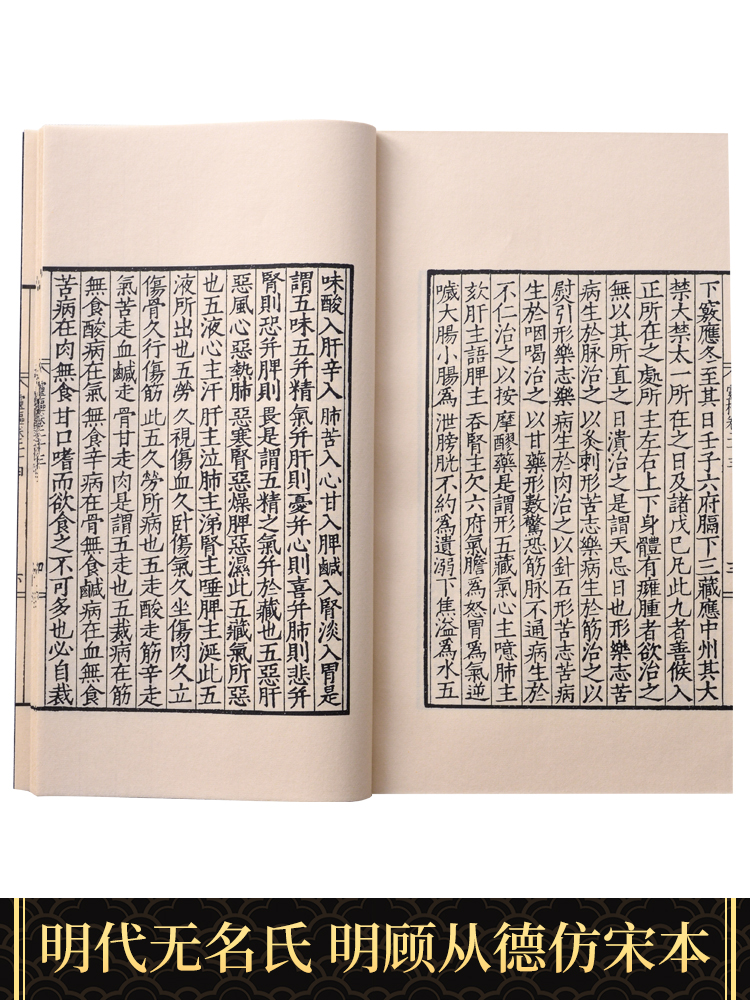 下竅應冬至其日壬子六府膈下三藏應中州其大
禁大禁太一所在之日及諸戊巳凡此九者善候入
正所在之處所主左右上下身體有癰腫者欲治之
無以其所直之日潰治之是謂天忌日也形樂志苦
病生於脉治之以灸刺形苦志樂病生於筋治之以
熨引形樂志樂病生於肉治之以針石形苦志苦病
生於咽喝治之以甘藥形數驚恐筋脉不通病生於
不仁治之以按摩醪藥是謂形五藏氣心主噫肺主
欬肝主語脾主吞腎主欠六府氣膽為怒胃為氣逆
噦大腸小腸為泄膀胱不約為遺溺下焦溢為水五
味酸入肝辛入肺苦入心甘入脾鹹入腎淡入胃是
謂五味五并精氣并肝則憂并心則喜并肺則悲并
腎則恐并脾則畏是謂五精之氣并於藏也五惡肝
惡風心惡熱肺惡寒腎惡燥脾惡濕此五藏氣所惡
也五液心主汗肝主泣肺主涕腎主唾脾主涎此五
液所出也五勞久視傷血久卧傷氣久坐傷肉久立
傷骨久行傷筋此五久勞所病也五走酸走筋辛走
氣苦走血鹹走骨甘走肉是謂五走也五裁病在筋
無食酸病在氣無食辛病在骨無食鹹病在血無食
苦病在肉無食甘口嗜而欲食之不可多也必自裁
明代无名氏 明顾从德仿宋本